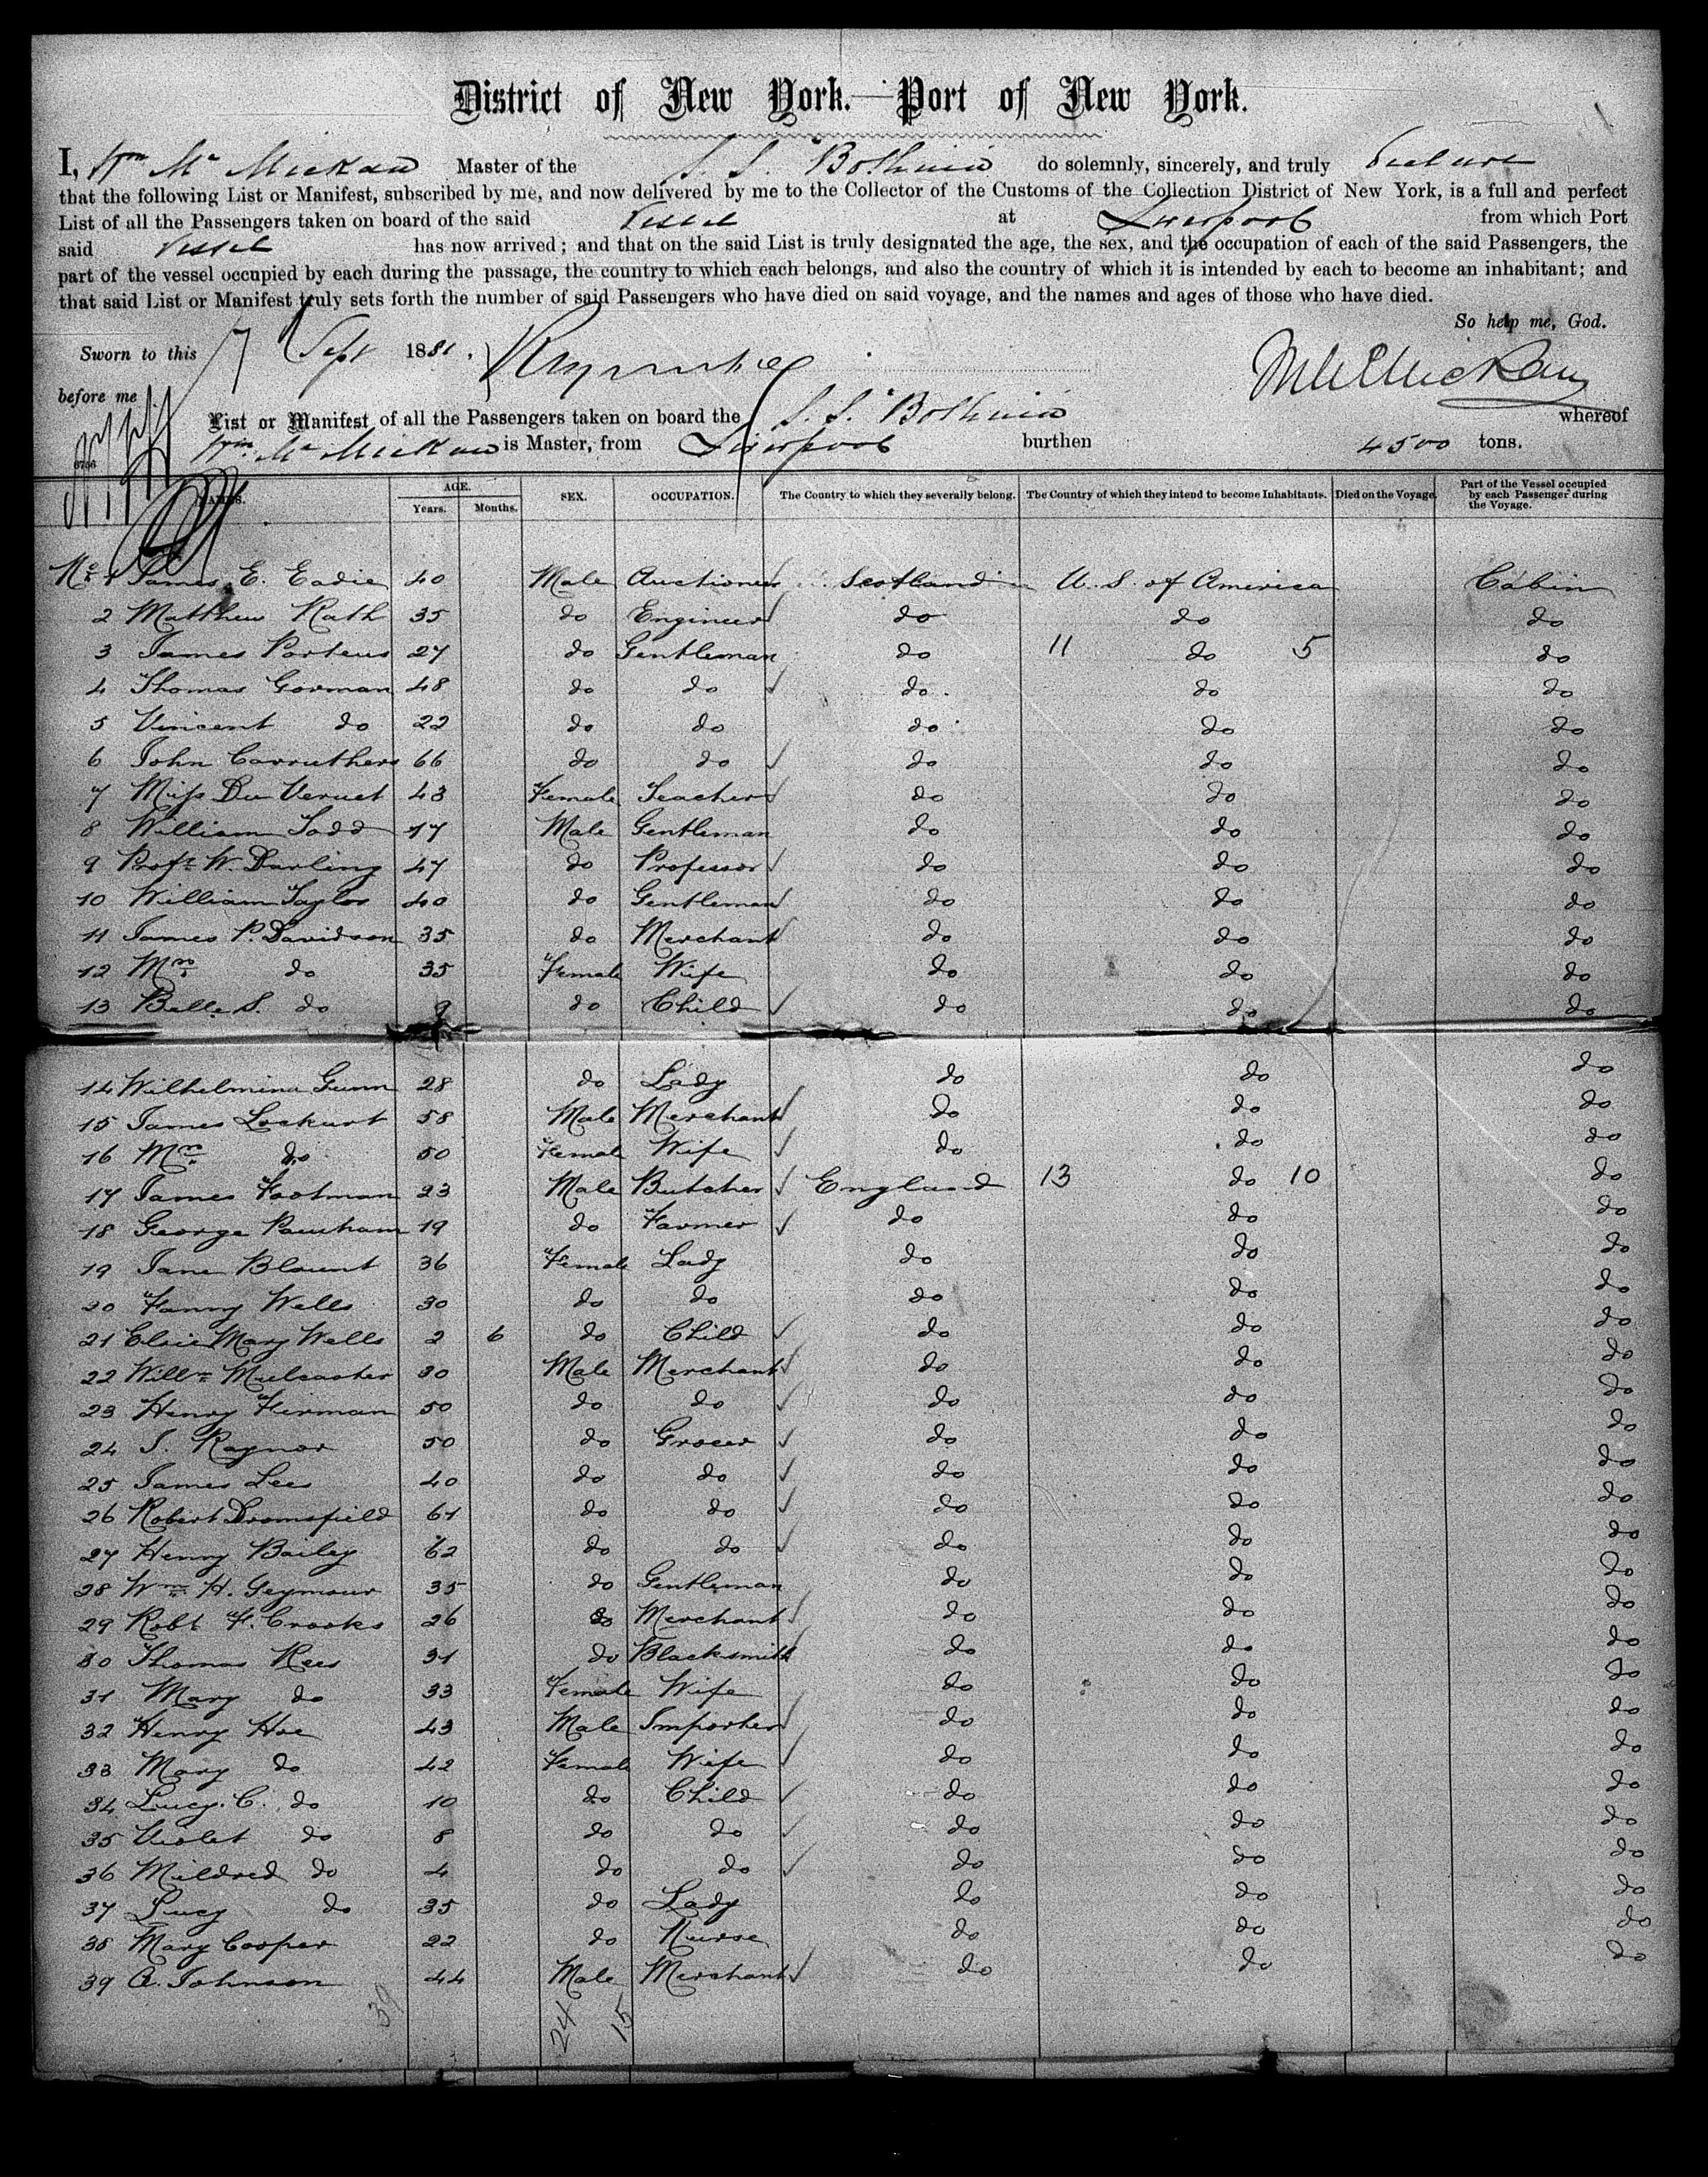 District of New York. Port of New York.
I, Wm Mc Mickan Master of the S. S. "Bothnia do solemnly, sincerely, and truly declare
that the following List or Manifest, subscribed by me, and now delivered by me to the Collector of the Customs of the Collection District of New York, is a full and perfect
List of all the Passengers taken on board of the said Vessel at Liverpool from which Port
said Vessel has now arrived; and that on the said List is truly designated the age, the sex, and the occupation of each of the said Passengers, the
part of the vessel occupied by each during the passage, the country to which each belongs, and also the country of which it is intended by each to become an inhabitant; and
that said List or Manifest truly sets forth the number of said Passengers who have died on said voyage, and the names and ages of those who have died.
So help me, God.
Sworn to this 7 Sept 1881,
before me
List or Manifest of all the Passengers taken on board the S. S. "Bothnia whereof
Wm. Mc Mickan is Master, from Liverpool burthen 4500 tons.
NAMES. AGE. SEX. OCCUPATION. The Country to which they severally belong. The Country of which they intend to become Inhabitants. Died on the Voyage. Part of the Vessel occupied by each Passenger during the Voyage.
Years. Months.
No 1 James E. Eadie 40 Male Auctioneer Scotland U. S. of America Cabin
2 Matthew Rath 35 do Engineer do do do
3 James Porteus 27 do Gentleman do 11 do 5 do
4 Thomas Gorman 48 do do do do do
5 Vincent do 22 do do do do do
6 John Carruthers 66 do do do do do
7 Miss Du Vernet 43 Female Teacher do do do
8 William Todd 17 Male Gentleman do do do
9 Profr W. Darling 47 do Professor do do do
10 William Taylor 40 do Gentleman do do do
11 James P. Davidson 35 do Merchant do do do
12 Mrs do 35 Female Wife do do do
13 Belle S. do 9 do Child do do do
14 Wilhelmina Gunn 28 do Lady do do do
15 James Lockurt 58 Male Merchant do do do
16 Mrs do 50 Female Wife do do do
17 James Footman 23 Male Butcher England 13 do 10 do
18 George 19 do Farmer do do do
19 Jane Blount 36 Female Lady do do do
20 Fanny Wells 30 do do do do do
21 Elsie Mary Wells 2 6 do Child do do do
22 Willm Mulcaster 30 Male Merchant do do do
23 Henry Firman 50 do do do do do
24 S. Raynor 50 do Grocer do do do
25 James Lees 40 do do do do do
26 Robert Dromsfield 61 do do do do do
27 Henry Bailey 62 do do do do do
28 Wm H. Seymour 35 do Gentleman do do do
29 Robt F. Crooks 26 do Merchant do do do
30 Thomas Rees 31 do Blacksmith do do do
31 Mary do 33 Female Wife do do do
32 Henry Hoe 43 Male Importer do do do
33 Mary do 42 Female Wife do do do
34 Lucy C. do 10 do Child do do do
35 Violet do 8 do do do do do
36 Mildred do 4 do do do do do
37 Lucy do 35 do Lady do do do
38 Mary Cooper 22 do Nurse do do do
39 A. Johnson 44 Male Merchant do do do
39 24 15